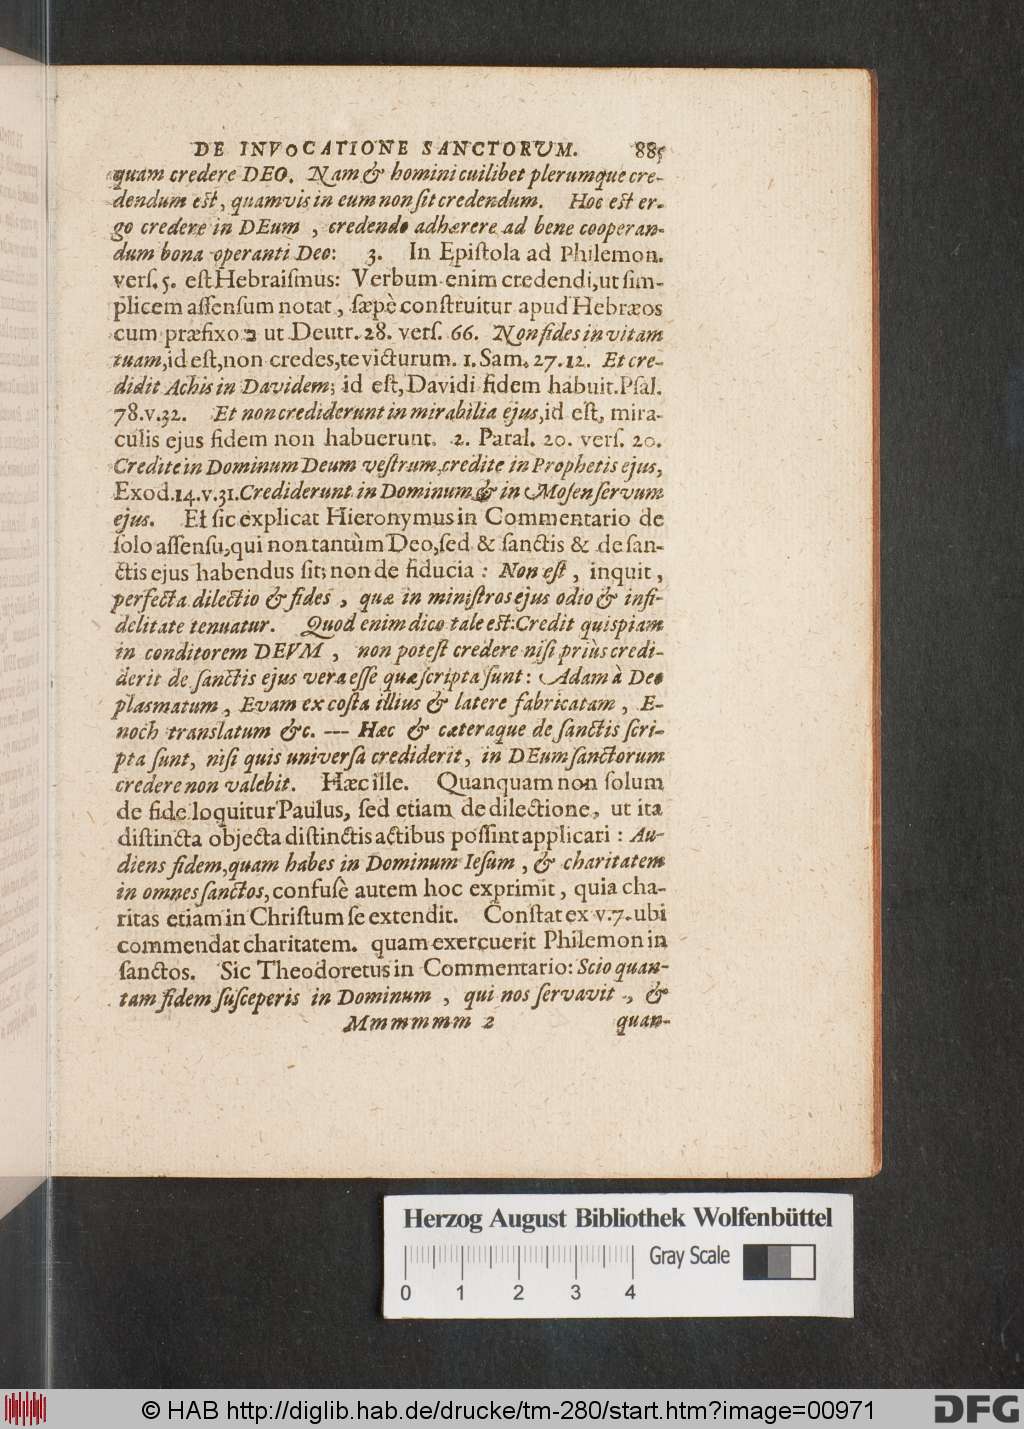 DE INVOCATIONE SANCTORUM. 885
quam credere DEO. Nam & homini cuilibet plerumque cre-
dendum est, quamvis in eum non sit credendum. Hoc est er-
go credere in DEum, credendo adhærere ad bene cooperan-
dum bona operanti Deo: 3. In Epiſtola ad Philemon.
verſ. 5. eſt Hebraiſmus: Verbum enim credendi, ut ſim-
plicem aſſenſum notat, ſæpè conſtruitur apud Hebræos
cum præfixo ב ut Deutr. 28. verſ. 66. Non fides in vitam
tuam, id eſt, non credes, te victurum. 1. Sam. 27. 12. Et cre-
didit Achis in Davidem; id eſt, Davidi fidem habuit. Pſal.
78. v. 32. Et non crediderunt in mirabilia ejus, id eſt, mira-
culis ejus fidem non habuerunt. 2. Paral. 20. verſ. 20.
Credite in Dominum Deum veſtrum, credite in Prophetis ejus,
Exod. 14. v. 31. Crediderunt in Dominum & in Moſen ſervum
ejus. Et ſic explicat Hieronymus in Commentario de
ſolo aſſenſu, qui non tantùm Deo, ſed & ſanctis & de ſan-
ctis ejus habendus ſit; non de fiducia: Non eſt, inquit,
perfecta dilectio & fides, quæ in miniſtros ejus odio & infi-
delitate tenuatur. Quod enim dico tale est: Credit quiſpiam
in conditorem DEVM, non poteſt credere niſi priùs credi-
derit de ſanctis ejus vera eſſe quæ ſcripta ſunt: Adam à Deo
plasmatum, Evam ex coſta illius & latere fabricatam, E-
noch translatum &c. --- Hæc & cæteraque de ſanctis ſcri-
pta ſunt, niſi quis univerſa crediderit, in DEum ſanctorum
credere non valebit. Hæc ille. Quanquam non ſolum
de fide loquitur Paulus, ſed etiam de dilectione, ut ita
diſtincta objecta diſtinctis actibus poſſint applicari: Au-
diens fidem, quam habes in Dominum Ieſum, & charitatem
in omnes ſanctos, confuſè autem hoc exprimit, quia cha-
ritas etiam in Chriſtum ſe extendit. Conſtat ex v. 7. ubi
commendat charitatem. quam exercuerit Philemon in
ſanctos. Sic Theodoretus in Commentario: Scio quan-
tam fidem ſuſceperis in Dominum, qui nos ſervavit, &
Mmmmmm 2 quan-
Herzog August Bibliothek Wolfenbüttel
Gray Scale
0 1 2 3 4
© HAB http://diglib.hab.de/drucke/tm-280/start.htm?image=00971
DFG